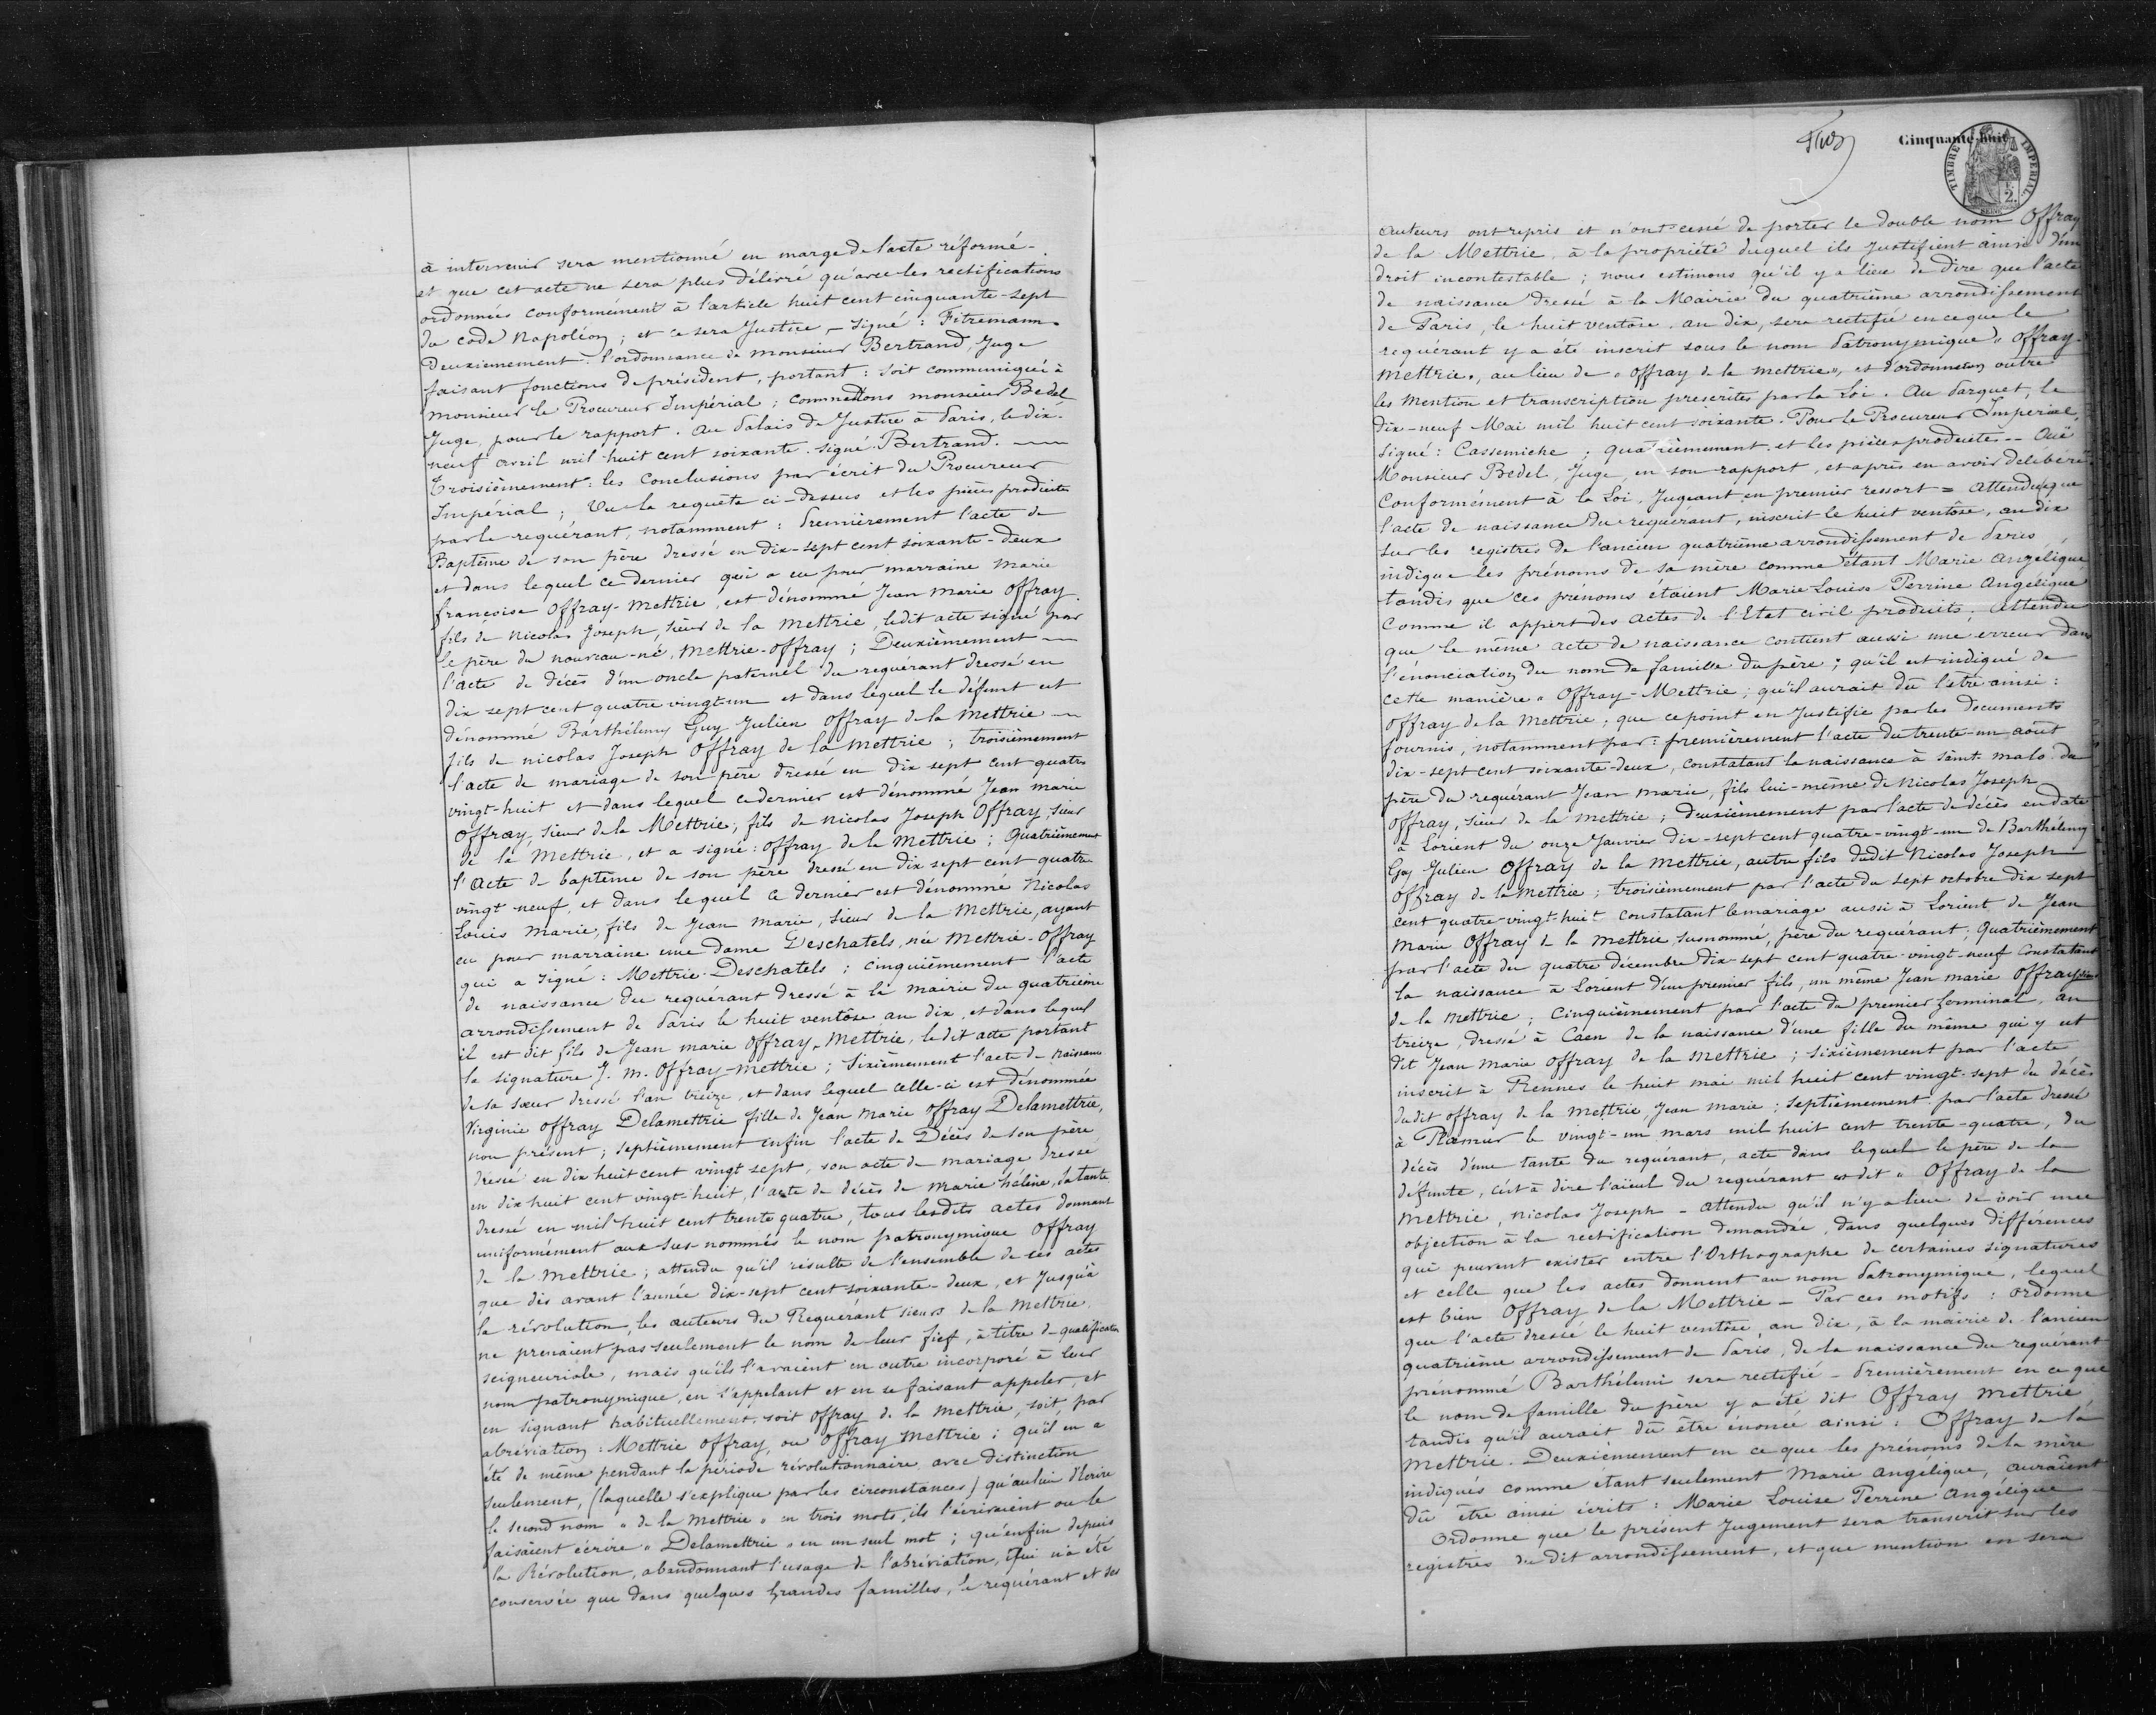 à intervenir sera mentionné en marge de l'acte réformé -
et que cet acte ne sera plus délivré qu'avec les rectifications
ordonnées conformément à l'article huit cent cinquante-sept
du code Napoléon ; et ce sera Justice _ signé : Fitremann.
Deuxièmement : l'ordonnance de monsieur Bertrand, Juge
faisant fonctions de président, portant : soit communiqué à
monsieur le Procureur Impérial ; commettons monsieur Bedel
Juge, pour le rapport. Au Palais de Justice à Paris, le dix-
neuf avril mil huit cent soixante. signé Bertrand. —
Troisièmement : les Conclusions par écrit du Procureur
Impérial ; Vu la requête ci-dessus et les pièces produites
par le requérant, notamment : Premièrement l'acte de
Baptême de son père dressé en dix-sept cent soixante-deux
et dans lequel ce dernier qui a eu pour marraine Marie
françoise Offray-Mettrie, est dénommé Jean Marie Offray.
fils de Nicolas Joseph, sieur de la Mettrie, ledit acte signé par
le père du nouveau-né, Mettrie-Offray ; Deuxièmement —
l'acte de décès d'un oncle paternel du requérant dressé en
dix sept cent quatre vingt-un et dans lequel le défunt est
dénommé Barthélemy Guy Julien Offray de la Mettrie —
fils de nicolas Joseph Offray de la Mettrie ; troisièmement
l'acte de mariage de son père dressé en dix sept cent quatre
vingt-huit et dans lequel ce dernier est dénommé Jean marie
Offray, sieur de la Mettrie, fils de nicolas Joseph Offray, sieur
de la Mettrie, et a signé : offray de la Mettrie ; Quatrièmement
l'acte de baptême de son père dressé en dix sept cent quatre
vingt neuf, et dans lequel ce dernier est dénommé Nicolas
Louis Marie, fils de Jean Marie, sieur de la Mettrie, ayant
eu pour marraine une dame Deschatels, née Mettrie-Offray
qui a signé : Mettrie-Deschatels ; cinquièmement l'acte
de naissance du requérant dressé à la mairie du quatrième
arrondissement de Paris le huit ventôse an dix, et dans lequel
il est dit fils de Jean marie Offray-Mettrie, ledit acte portant
la signature J. m. Offray-mettrie ; Sixièmement l'acte de naissance
de sa sœur dressé l'an treize, et dans lequel celle-ci est dénommée
Virginie offray Delamettrie fille de Jean Marie Offray Delamettrie,
non présent ; septièmement enfin l'acte de Décès de son père
dressé en dix huit cent vingt sept, son acte de mariage dressé
en dix huit cent vingt-huit, l'acte de décès de marie hélène, sa tante
dressé en mil huit cent trente quatre, tous lesdits actes donnant
uniformément aux sus-nommés le nom patronymique Offray
de la Mettrie ; attendu qu'il résulte de l'ensemble de ces actes
que dès avant l'année dix-sept cent soixante-deux, et jusqu'à
la révolution, les auteurs du Requérant sieurs de la Mettrie
ne prenaient pas seulement le nom de leur fief, à titre de qualification
seigneuriale, mais qu'ils l'avaient en outre incorporé à leur
nom patronymique, en s'appelant et en se faisant appeler, et
en signant habituellement, soit offray de la Mettrie, soit par
abréviation : Mettrie offray, ou Offray Mettrie ; qu'il en a
été de même pendant la période révolutionnaire avec distinction
seulement, (laquelle s'explique par les circonstances) qu'au lieu d'écrire
le second nom « de la Mettrie » en trois mots, ils l'écrivaient ou le
faisaient écrire « Delamettrie » en un seul mot ; qu'enfin depuis
la Révolution, abandonnant l'usage de l'abréviation, qui n'a été
conservée que dans quelques Grandes familles, le requérant et ses
Cinquante-huit
TIMBRE IMPERIAL
2.
auteurs ont repris et n'ont cessé de porter le double nom Offray
de la Mettrie, à la propriété duquel ils Justifient ainsi d'un
droit incontestable ; nous estimons qu'il y a lieu de dire que l'acte
de naissance dressé à la Mairie du quatrième arrondissement
de Paris, le huit ventôse, an dix, sera rectifié en ce que le
requérant y a été inscrit sous le nom Patronymique « Offray-
Mettrie », au lieu de « offray de la mettrie », et d'ordonner en outre
les Mention et transcription prescrites par la Loi. Au Parquet, le
dix-neuf Mai mil huit cent soixante. Pour le Procureur Impérial,
signé : Cassemiche ; Quatrièmement et les pièces produites -- Ouï
Monsieur Bedel, Juge, en son rapport, et après en avoir délibéré
Conformément à la Loi, Jugeant en premier ressort = Attendu que
l'acte de naissance du requérant, inscrit le huit ventôse, an dix
sur les registres de l'ancien quatrième arrondissement de Paris
indique les prénoms de sa mère comme étant Marie Angélique,
tandis que ces prénoms étaient Marie Louise Perrine Angélique
Comme il appert des actes de l'Etat civil produits. Attendu
que le même acte de naissance contient aussi une erreur dans
l'énonciation du nom de famille du père ; qu'il est indiqué de
cette manière « Offray-Mettrie ; qu'il aurait dû l'être ainsi :
Offray de la Mettrie ; que ce point en Justifie par les Documents
fournis, notamment par : premièrement l'acte du trente-un août
dix-sept cent soixante-deux, constatant la naissance à saint-malo du
père du requérant Jean Marie, fils lui-même de Nicolas Joseph
Offray, sieur de la Mettrie ; deuxièmement par l'acte de décès en date
à Lorient du onze Janvier dix-sept cent quatre-vingt-un de Barthélemy
Guy Julien Offray de la Mettrie, autre fils dudit Nicolas Joseph
Offray de la Mettrie ; troisièmement par l'acte du sept octobre dix sept
cent quatre-vingt-huit constatant le mariage aussi à Lorient de Jean
Marie Offray de la Mettrie, susnommé, père du requérant ; Quatrièmement
par l'acte du quatre décembre dix-sept cent quatre-vingt-neuf Constatant
la naissance à Lorient d'un premier fils, un même Jean marie Offray, sieur
de la Mettrie ; Cinquièmement par l'acte du premier Germinal, an
treize, dressé à Caen de la naissance d'une fille du même qui y est
dit Jean Marie Offray de la Mettrie ; sixièmement par l'acte
inscrit à Rennes le huit mai mil huit cent vingt-sept du décès
dudit offray de la Mettrie, Jean marie ; Septièmement par l'acte dressé
à Plœmeur le vingt-un mars mil huit cent trente-quatre, du
décès d'une tante du requérant, acte dans lequel le père de la
défunte, c'est à dire l'aïeul du requérant est dit « Offray de la
Mettrie, nicolas Joseph - attendu qu'il n'y a lieu de voir une
objection à la rectification demandée, dans quelques différences
qui peuvent exister entre l'Orthographe de certaines signatures
et celle que les actes donnent au nom Patronymique, lequel
est bien Offray de la Mettrie _ Par ces motifs : ordonne
que l'acte dressé le huit ventôse, an dix, à la mairie de l'ancien
quatrième arrondissement de Paris, de la naissance du requérant
prénommé Barthélemi sera rectifié - Premièrement en ce que
le nom de famille du père y a été dit Offray Mettrie
tandis qu'il aurait dû être énoncé ainsi : Offray de la
Mettrie. Deuxièmement en ce que les prénoms de la mère
indiqués comme étant seulement Marie Angélique, auraient
dû être ainsi écrits : Marie Louise Perrine Angélique
Ordonne que le présent Jugement sera transcrit sur les
registres du dit arrondissement, et que mention en sera